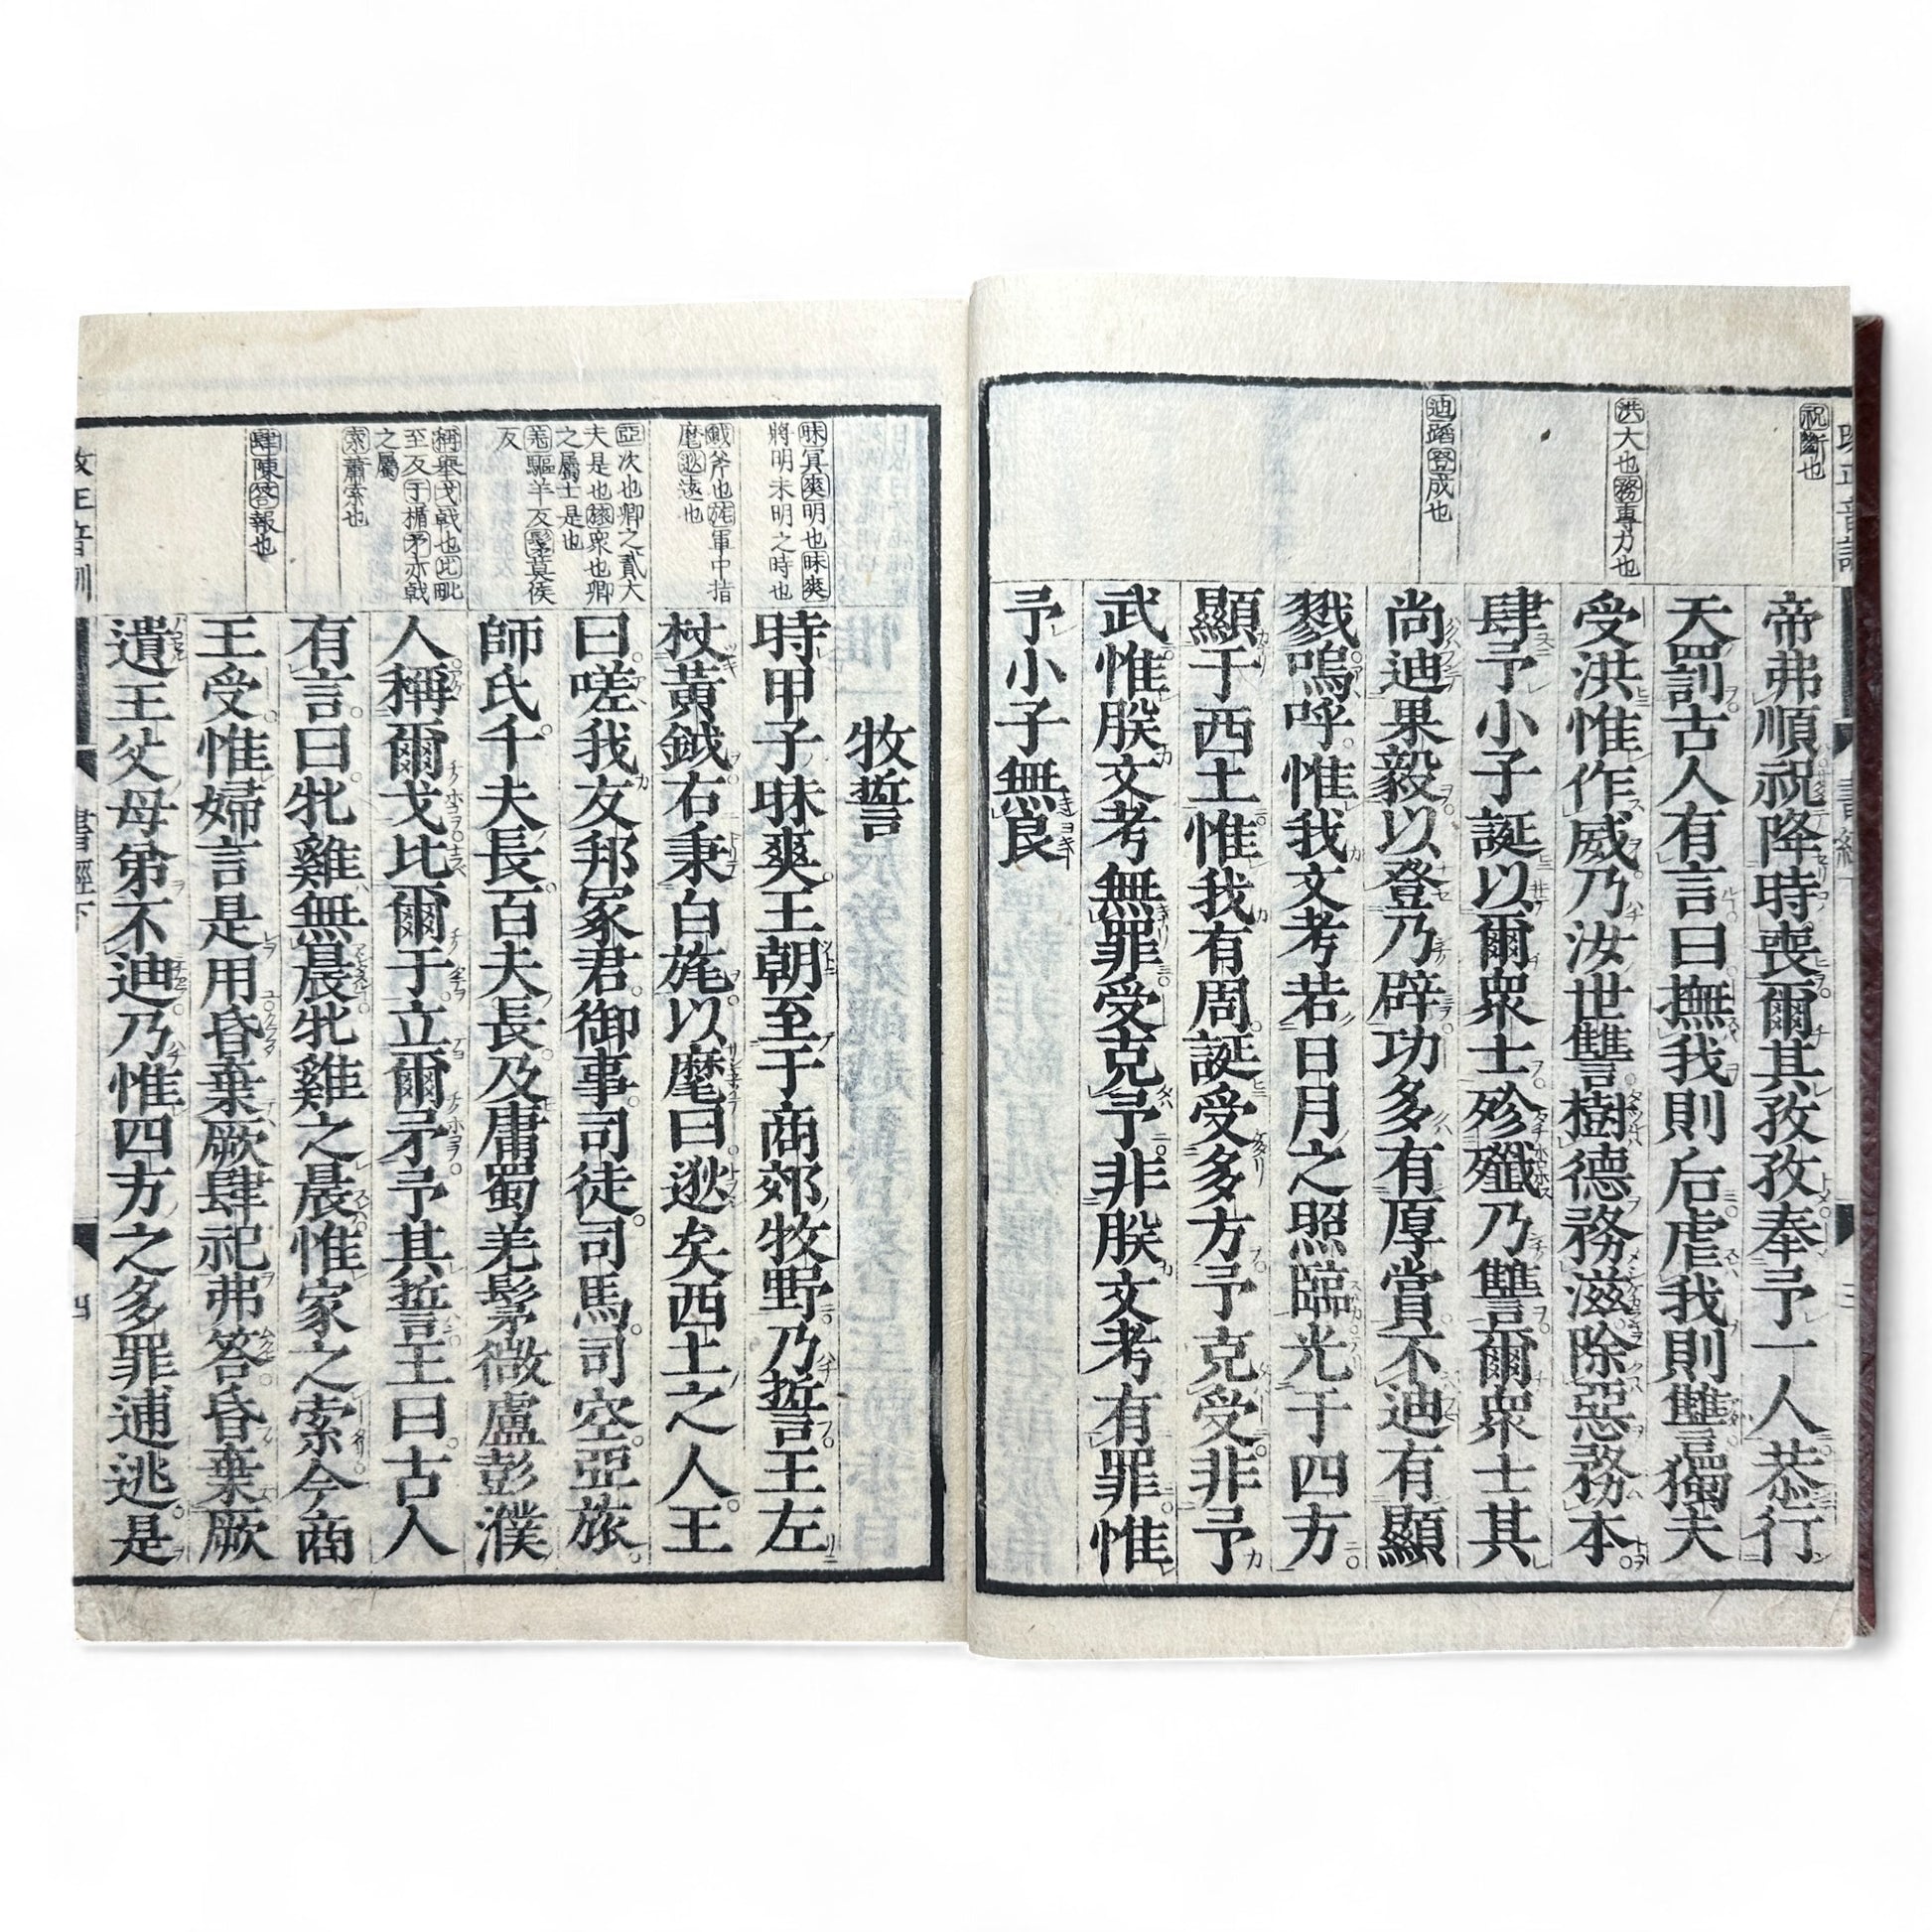 祝斷也
洪大也務專力也
迪蹈登成也
帝弗順祝降時喪爾其孜孜奉予一人恭行
天罰古人有言曰撫我則后虐我則讎獨夫
受洪惟作威乃汝世讎樹德務滋除惡務本
肆予小子誕以爾衆士殄殲乃讎爾衆士其
尚迪果毅以登乃辟功多有厚賞不迪有顯
戮嗚呼惟我文考若日月之照臨光于四方
顯于西土惟我有周誕受多方予克受非予
武惟朕文考無罪受克予非朕文考有罪惟
予小子無良
昧冥爽明也昧爽
將明未明之時也
鉞斧也旄軍中指
麾逖遠也
亞次也卿之貳大
夫是也旅衆也卿
之屬士是也
羌驅羊反髳莫侯
反
稱舉戈戟也比毗
至反干楯矛亦戟
之屬
索蕭索也
肆陳答報也
牧誓
時甲子昧爽王朝至于商郊牧野乃誓王左
杖黃鉞右秉白旄以麾曰逖矣西土之人王
曰嗟我友邦冢君御事司徒司馬司空亞旅
師氏千夫長百夫長及庸蜀羌髳微盧彭濮
人稱爾戈比爾干立爾矛予其誓王曰古人
有言曰牝雞無晨牝雞之晨惟家之索今商
王受惟婦言是用昏棄厥肆祀弗答昏棄厥
遺王父母弟不迪乃惟四方之多罪逋逃是
書經下
四